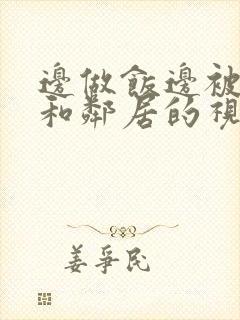 邊做飯邊被
和鄰居的視
姜爭民